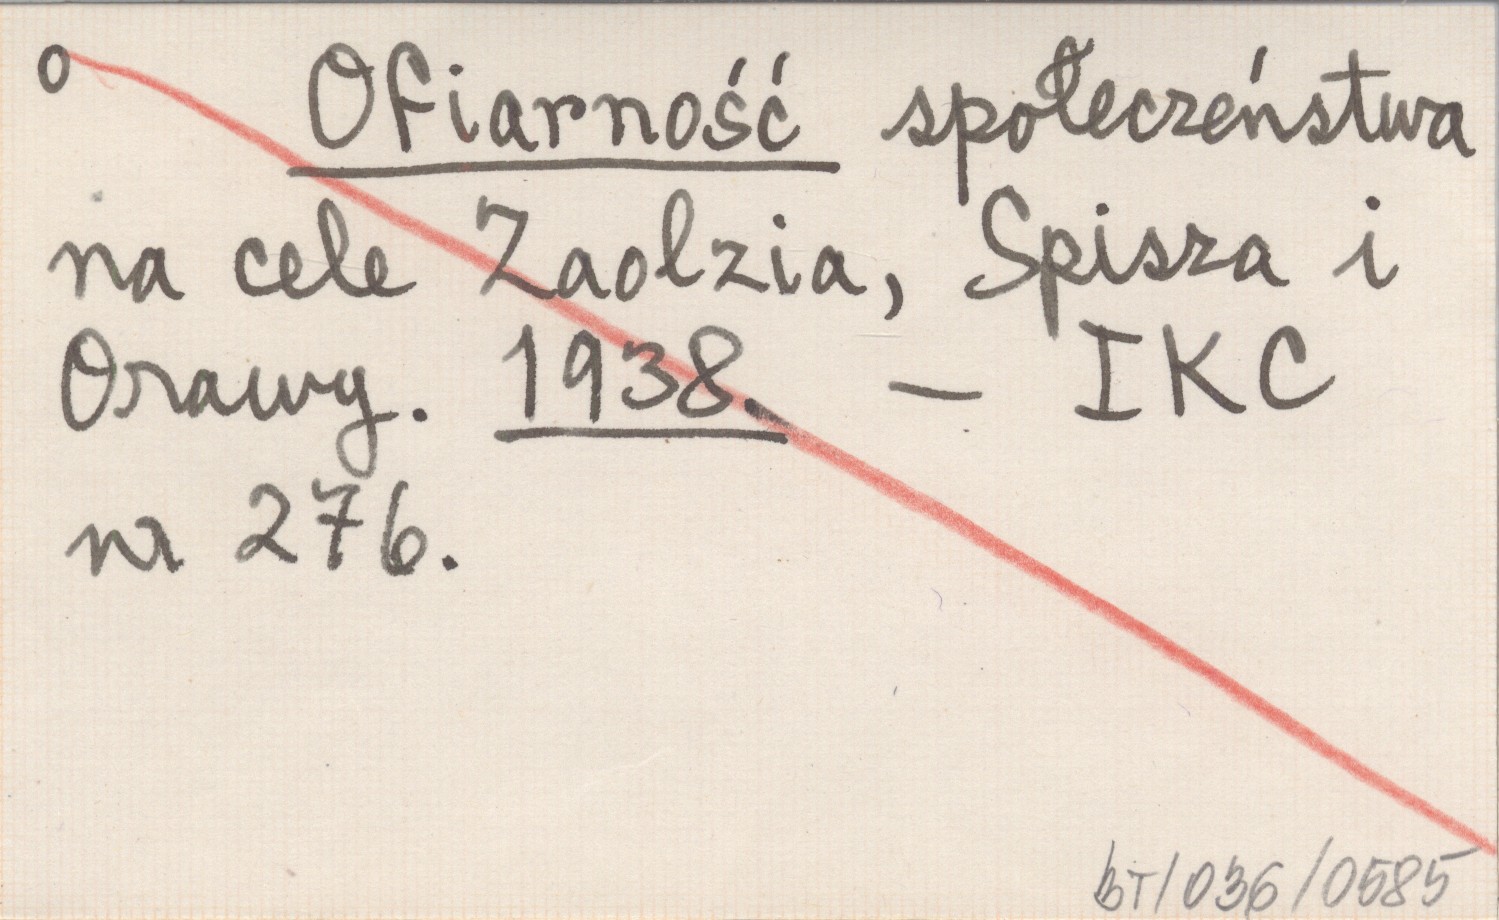 o Ofiarność społeczeństwa
na cele Zaolzia, Spisza i
Orawy. 1938. — IKC
nr 276.
BT/036/0585